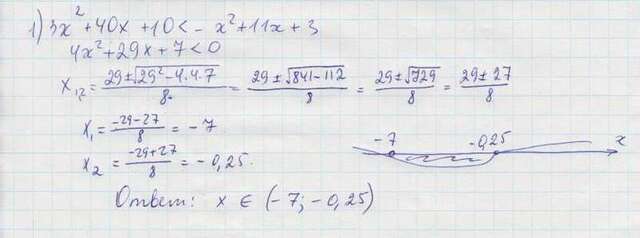 1) 3x² + 40x + 10 < - x² + 11x + 3
4x² + 29x + 7 < 0
x₁,₂ = (29 ± √(29² - 4·4·7))/8 = (29 ± √(841 - 112))/8 = (29 ± √729)/8 = (29 ± 27)/8
x₁ = (-29-27)/8 = -7
x₂ = (-29+27)/8 = -0,25.
-7 -0,25 x
Ответ: x ∈ (-7; -0,25)